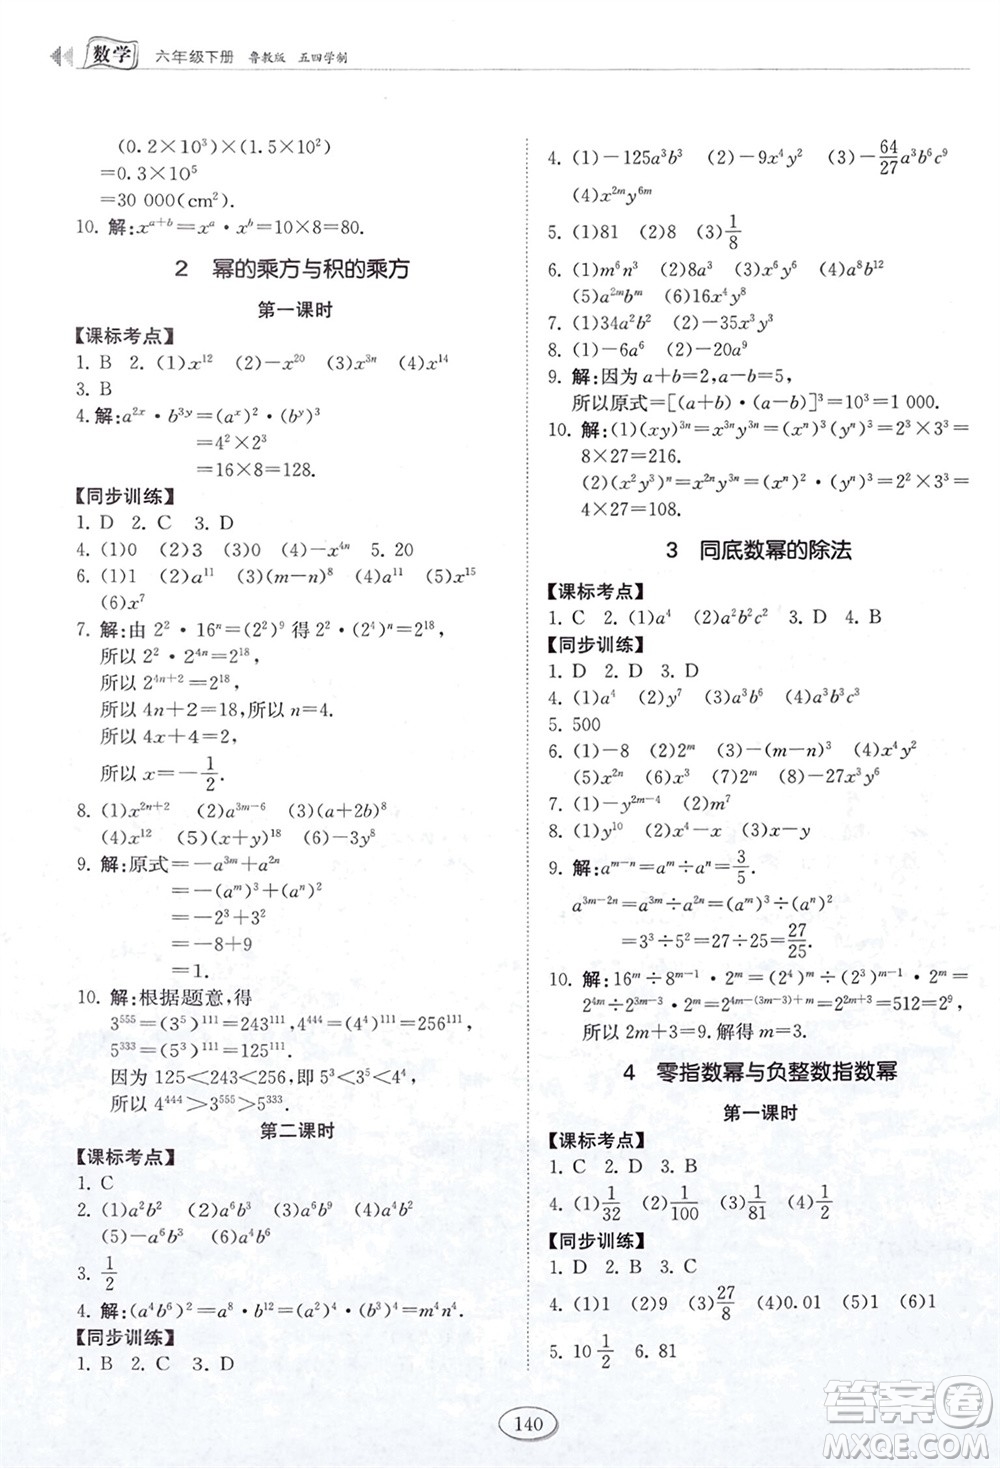 数学 六年级下册 鲁教版 五四学制
(0.2×10³)×(1.5×10²)
=0.3×10⁵
=30 000(cm²).
10. 解:xᵃ⁺ᵇ=xᵃ·xᵇ=10×8=80.
2 幂的乘方与积的乘方
第一课时
【课标考点】
1. B 2. (1)x¹² (2)-x²⁰ (3)x³ⁿ (4)x¹⁴
3. B
4. 解:a²ˣ·b³ʸ=(aˣ)²·(bʸ)³
=4²×2³
=16×8=128.
【同步训练】
1. D 2. C 3. D
4. (1)0 (2)3 (3)0 (4)-x⁴ⁿ 5. 20
6. (1)1 (2)a¹¹ (3)(m-n)⁸ (4)a¹¹ (5)x¹⁵
(6)x⁷
7. 解:由 2²·16ⁿ=(2²)⁹ 得 2²·(2⁴)ⁿ=2¹⁸,
所以 2²·2⁴ⁿ=2¹⁸,
所以 2⁴ⁿ⁺²=2¹⁸,
所以 4n+2=18,所以 n=4.
所以 4x+4=2.
所以 x=-1/2.
8. (1)x²ⁿ⁺² (2)a³ᵐ⁻⁶ (3)(a+b)⁸
(4)x¹² (5)(x+y)¹⁸ (6)-3x⁶
9. 解:原式=-a³ᵐ+a²ⁿ
=-(aᵐ)³+(aⁿ)²
=-2³+3²
=-8+9
=1.
10. 解:根据题意,得
3⁵⁵⁵=(3⁵)¹¹¹=243¹¹¹,4⁴⁴⁴=(4⁴)¹¹¹=256¹¹¹,
5³³³=(5³)¹¹¹=125¹¹¹.
因为 125<243<256,即 5³<3⁵<4⁴.
所以 4⁴⁴⁴>3⁵⁵⁵>5³³³.
第二课时
【课标考点】
1. C
2. (1)a²b² (2)a⁶b³ (3)a⁶b³ (4)a⁶b³
(5)-a⁶b³
3. 1/2
4. 解:(a⁴b⁶)²=a⁸·b¹²=(a⁴)²·(b³)⁴=m⁴n⁴.
【同步训练】
1. B 2. C 3. D
4. (1)-125a³b³ (2)-9x⁴y² (3)-64/27a³b⁶c⁹
(4)x²ᵐy⁶ᵐ
5. (1)81 (2)8 (3)1/8
6. (1)m⁶n³ (2)8a³ (3)x⁴y⁶ (4)a⁸b¹²
(5)a²ᵐbᵐ (6)16x⁴y⁸
7. (1)34a²b² (2)-35x³y³
8. (1)-6a⁶ (2)-20a⁹
9. 解:因为 a+b=2,a-b=5,
所以原式=[(a+b)·(a-b)]³=10³=1 000.
10. 解:(1)(xy)³ⁿ=x³ⁿy³ⁿ=(xⁿ)³(yⁿ)³=2³×3³=
8×27=216.
(2)(x²y³)ⁿ=x²ⁿy³ⁿ=(xⁿ)²·(yⁿ)³=2²×3³=
4×27=108.
3 同底数幂的除法
【课标考点】
1. C 2. (1)a⁴ (2)a²b²c² 3. D 4. B
【同步训练】
1. D 2. D 3. D
4. (1)a⁴ (2)y⁷ (3)a³b⁶ (4)a³b³c³
5. 500
6. (1)-8 (2)2ᵐ (3)-(m-n)³ (4)x²y²
(5)x²ⁿ (6)27 (7)2ᵐ (8)-27x³y⁶
7. (1)-y²ᵐ⁻⁴ (2)m⁷
8. (1)y¹⁰ (2)x⁴-x (3)x-y
9. 解:aᵐ⁻ⁿ=aᵐ÷aⁿ=3/5.
a³ᵐ⁻²ⁿ=a³ᵐ÷a²ⁿ=(aᵐ)³÷(aⁿ)²
=3³÷5²=27÷25=27/25.
10. 解:16ᵐ÷8ᵐ⁻¹·2ᵐ=(2⁴)ᵐ÷(2³)ᵐ⁻¹·2ᵐ=
2⁴ᵐ÷2³ᵐ⁻³·2ᵐ=2⁴ᵐ⁻³ᵐ⁺³⁺ᵐ=2²ᵐ⁺³=512=2⁹,
所以 2m+3=9. 解得 m=3.
4 零指数幂与负整数指数幂
第一课时
【课标考点】
1. C 2. D 3. B
4. (1)1/32 (2)1/100 (3)1/81 (4)1/2
【同步训练】
1. D 2. B 3. C
4. (1)1 (2)9 (3)27/8 (4)0.01 (5)1 (6)1
5. 10 1/2 6. 81
140
答案圈
MXQE.COM